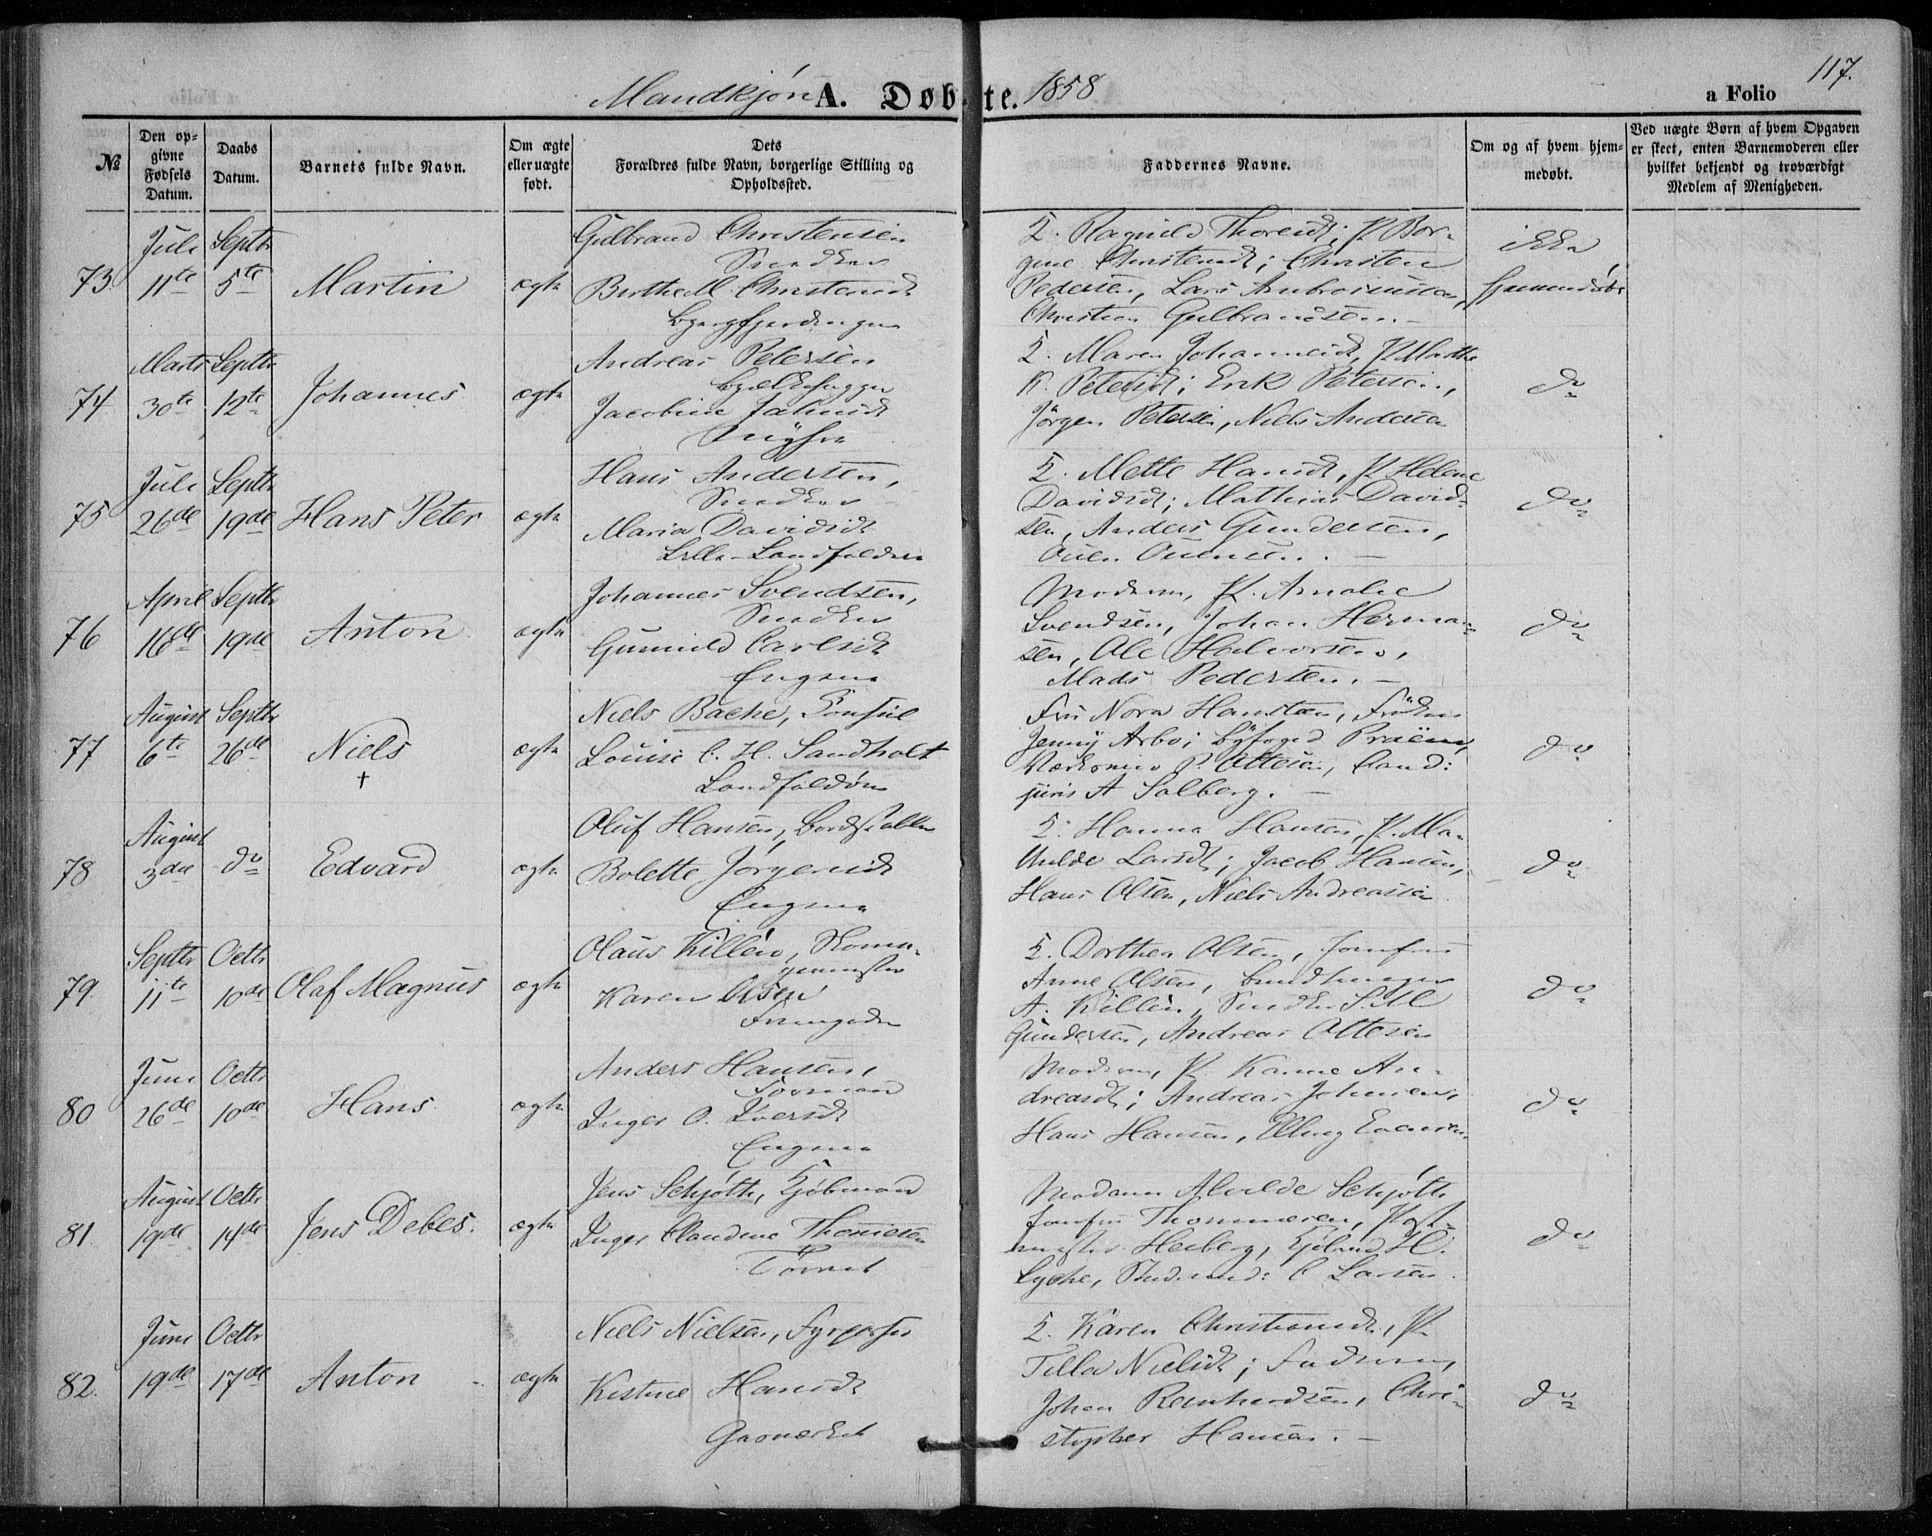 Mandkjøn A. Døbte. 1858
117.
a Folio
№
Den opgivne Fødsels Datum.
Daabs Datum.
Barnets fulde Navn.
Om ægte eller uægte født.
Dets Forældres fulde Navn, borgerlige Stilling og Opholdssted.
Faddernes Navne.
Om og af hvem hjemmedøbt.
Ved uægte Børn af hvem Opgaven er skeet, enten Barnemoderen eller hvilket bekjendt og troværdigt Medlem af Menigheden.
73. Juli 11te Septbr 5te Martin ægte
Gulbrand Christensen
Snedker
Berthe M. Christensdt
Bergfjerdingen
Ragnild Thoresdt; P. Bor-
gine Christensdt; Christen
Pedersen, Lars Ambrosiussen,
Christian Gulbrandsen. –
ikke
hjemmedøbt
74 Marts 30te Septbr 12te Johannes ægte
Andreas Petersen
Jacobine
Maren Johannesdt, P. Marthe
K. Petersdt; Erik Petersen,
Jörgen Petersen, Niels Andersen
do
75 Juli 26de Septbr 19de Hans Peter ægte
Hans Andersen,
Snedker
Maria Davidsdt
Lille-Landfalden
Mette Hansdt, P. Helene
Davidsdt; Mathias David-
sen, Anders Gundersen,
do
76 April 16de Septbr 19de Anton ægte
Johannes Svendsen,
Snedker
Gunnild Carlsdt
Engene
Moderen, P. Amalie
Svendsen, Johan Herman-
sen, Ole Halvorsen,
Mads Pedersen. –
do
77 August 6te Septbr 26de Niels † ægte
Niels Bache, Consul
Louise C. H. Sandholt
Landfaldøen
Fru Nora Hansteen, Frøken
Jenny Arbo; Byfoged Praëm,
P. Ottesen, Cand:
juris A Solberg. –
do
78 August 3die do Edvard ægte
Oluf Hansen, Bordstabler
Bolette Jørgensdt
Engene
Hanna Hansen, P. Ma-
thilde Larsdt; Jacob Hansen,
Hans Olsen, Niels Andreassen
do
79. Septbr 11te Octbr 10de Olaf Magnus ægte
Olaus Killén, Skoma-
germester
Karen Olsen
Dorthea Olsen, Jomfru
Anne Olsen, Bundtmager
A. Killén, Snedker S. M.
Gundersen, Andreas Ottesen
do
80 Juni 26de Octbr 10de Hans ægte
Anders Hansen,
Formand
Inger O. Iversdt
Engene
Moderen, P. Kanne An-
dreasdt; Andreas Johnsen,
Hans Hansen, Elling Evensen.
do
81. August 19de Octbr 14de Jens Debes. ægte
Jens Schjøth, Kjøbmand
Inger Claudine Thomesen
Torvet
Madame Alvilde Schjøth
Jomfru Thommesen, Post-
mester Heiberg, Kjøbmd H.
Lyche, Stud. med: C Larsen.
do
82. Juni 19de Octbr 17de Anton ægte
Niels Nielsen, Fyrpasser
Kirstine Hansdt
Gasværket
Karen Christiansdt, P.
Tilla Nielsdt; Faderen,
Johan Reinhardsen, Chri-
stopher Hansen. –
do